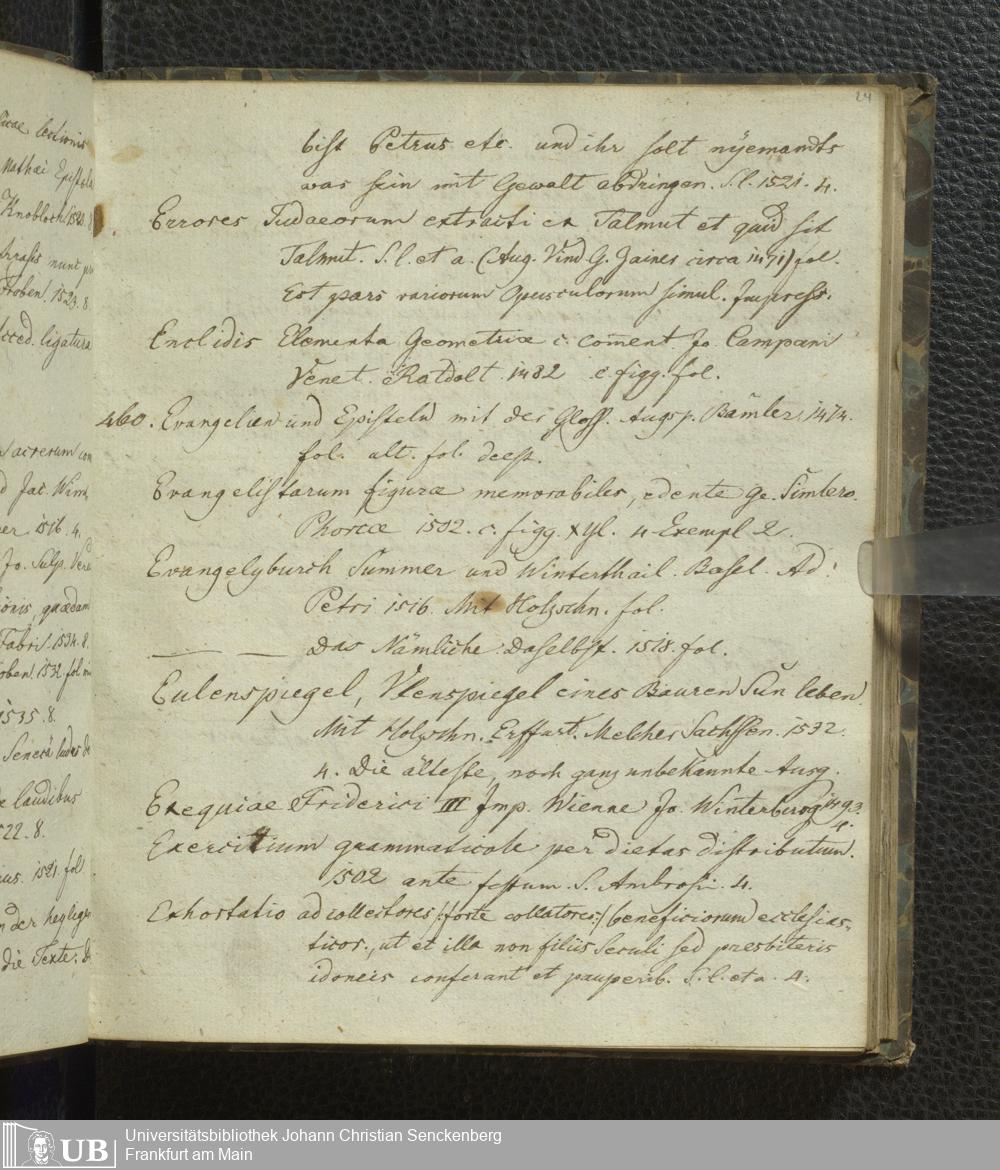 24
bist Petrus etc. und ihr solt nÿemandts
was sein mit Gewalt abdringen. S. l. 1521. 4.
Errores Judaeorum extracti ex Talmut et quid sit
Talmut. S. l. et a. (Aug. Vind G. Zainer circa 1471) fol.
Est pars variorum Opusculorum simul. Impress.
Euclidis Elementa Geometriæ c. com̄ent Jo. Campani
Venet. Ratdolt 1482 c. figg. fol.
460. Evangelien und Episteln mit der Gloss. Augsp. Bämler, 1474.
fol. ult. fol. deest.
Evangelistarum figuræ memorabiles, edente Ge. Simlero.
Phorcæ 1502. c. figg. xyl. 4 Exempl 2.
Evangelyburch Summer und Winterthail. Basel. Ad:
Petri 1516. Mit Holzschn. fol.
— — Das Nämliche Daselbst. 1518. fol.
Eulenspiegel, Vlenspiegel eines Bauren Sun leben
Mit Holzschn. Erffurt. Melcher Sachssen. 1532.
4. Die älteste, noch ganz unbekannte Ausg.
Exequiae Friderici III Imp. Wienne Jo. Winterberog 1493.
4.
Exercitium grammaticale per dietas distributum.
1502 ante festum S. Ambrosii. 4.
Exhortatio ad collectores /:forte collatores:/ beneficiorum ecclesias-
ticor., ut et illa non filiis seculi sed presbiteris
idoneis conferant et pauperib. S. l. et a. 4.
lectionis
Mathai Epistola
Knobloch 1521. 8
nunc
Froben. 1523. 8.
ligatura
acrerum
Jac. Wim
1516. 4.
Jo. Sulp.
quædam
Fabri. 1534. 8.
1532 fol
1535. 8.
Senecä ludus de
laudibus
22. 8.
1521. fol
der heylige
die Texte.
UB
Universitätsbibliothek Johann Christian Senckenberg
Frankfurt am Main